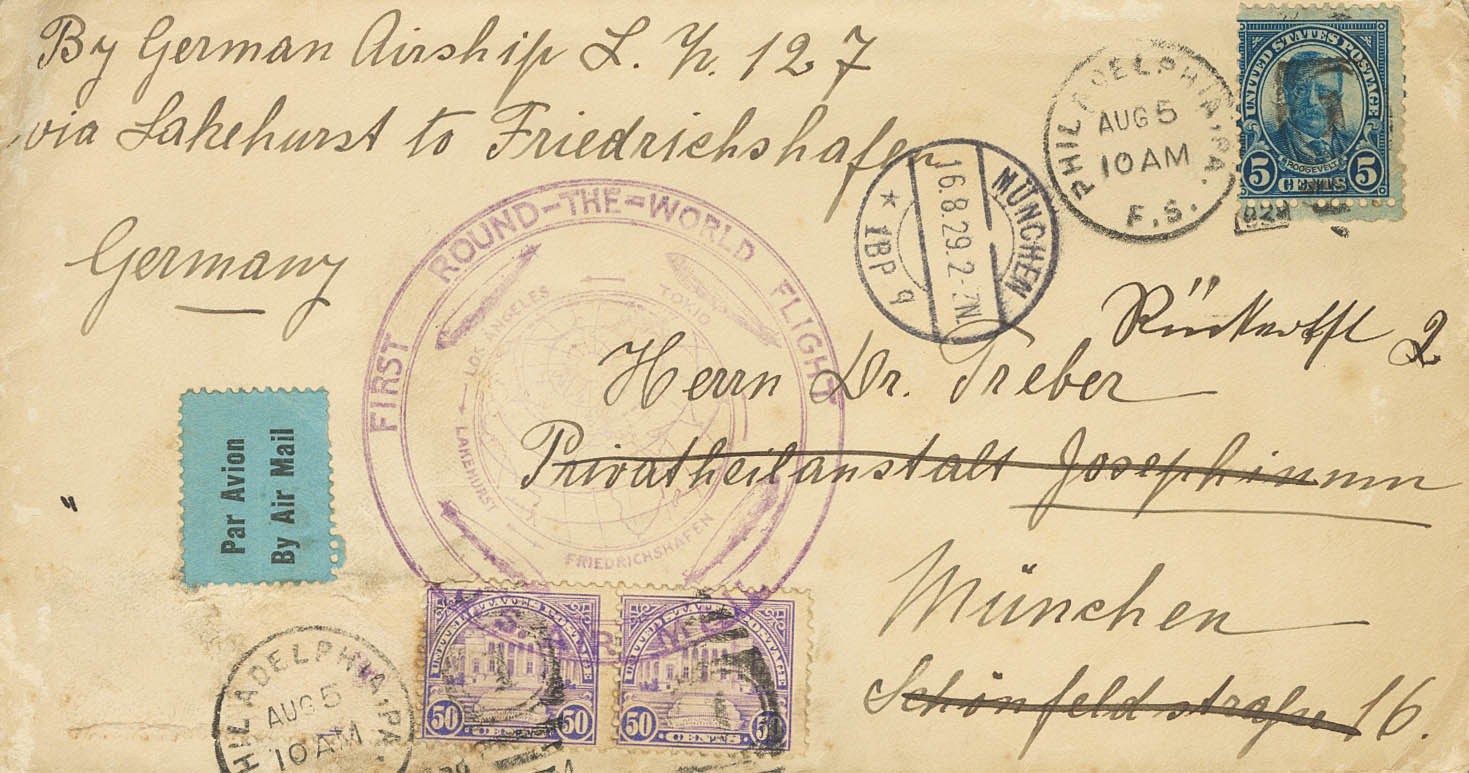 By German Airship L. Z. 127
via Lakehurst to Friedrichshafen
Germany
UNITED STATES POSTAGE
ROOSEVELT
5 CENTS 5
PHILADELPHIA, PA.
AUG 5
10 AM
F.S.
MÜNCHEN
16.8.29.2-2N.
* 1BP 9
FIRST ROUND-THE-WORLD FLIGHT
U.S. AIR MAIL
LOS ANGELES
TOKIO
LAKEHURST
FRIEDRICHSHAFEN
2
Herrn Dr. Treber
Privatheilanstalt Josephinum
München
Schönfeldstraße 16.
Par Avion
By Air Mail
UNITED STATES POSTAGE
50 CENTS 50
UNITED STATES POSTAGE
50 CENTS 50
PHILADELPHIA, PA.
AUG 5
10 AM